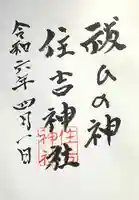 祓ひの神
住吉神社
住吉
神社
令和六年四月一日